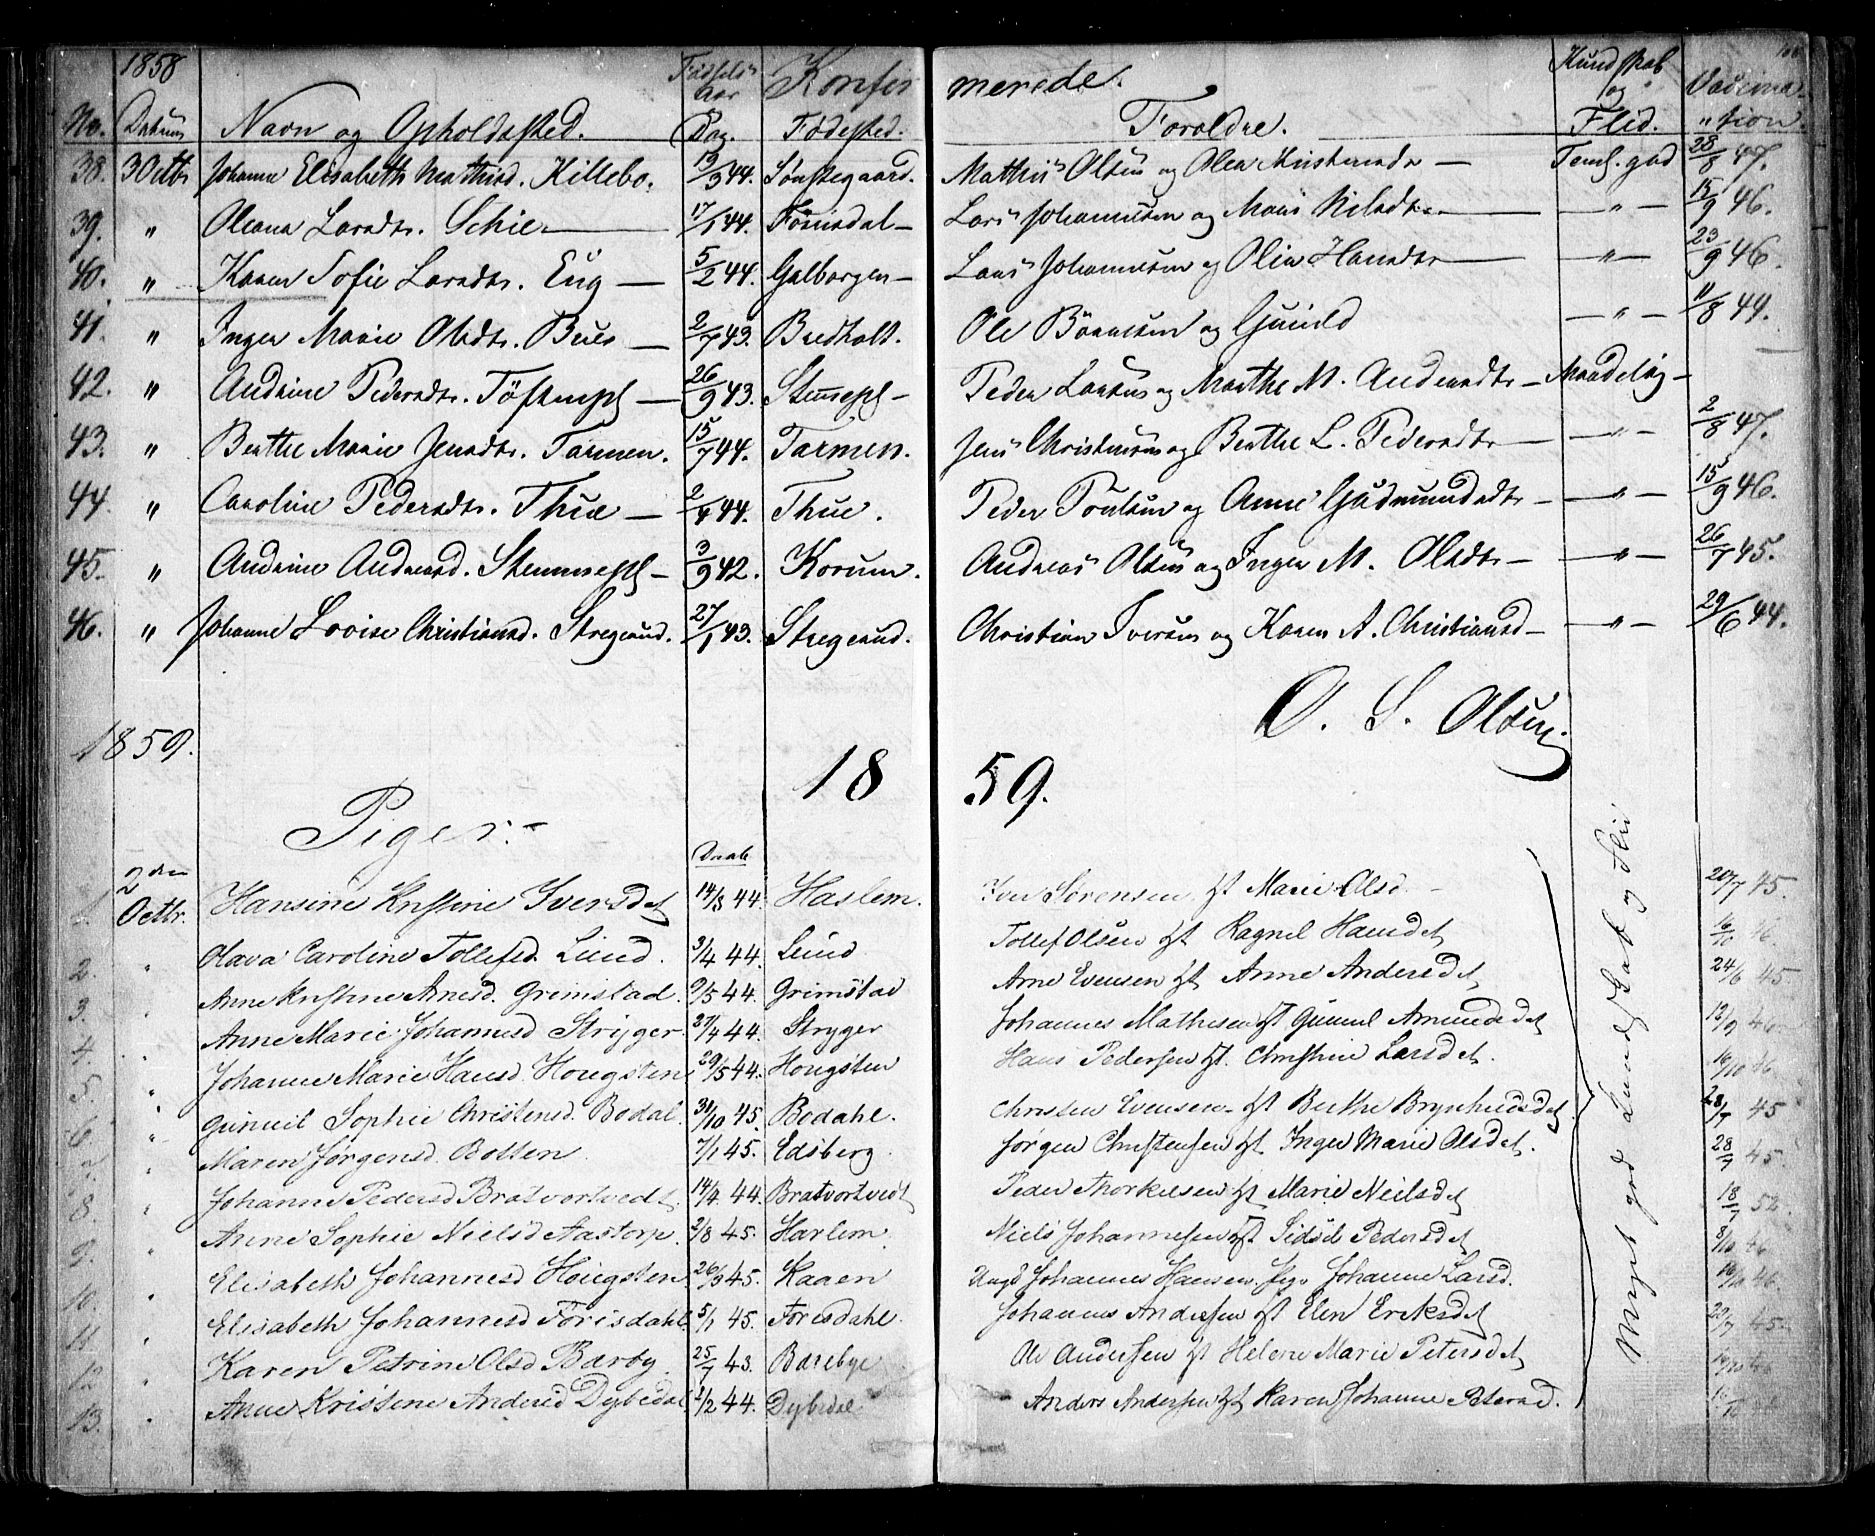 1858 Fødsels Konfir merede. Kundskab
Aar og Vaccina-
No. Datum Navn og Opholdssted. Dag. Fødested. Foroldre. Flid. tion.
38. 3 Octbr Johanne Elisabeth Mathisd. Killebo. 19/3 44. Sønstegaard. Mathis Olsen og Olea — Teml. god 28/8 47.
39. " Oleana Larsdtr. Schie 17/1 44. Lars Johannesen og Maris Nilsdtr — " — 15/9 46.
40. " Karen Sofie Larsdtr. Eug — 5/2 44. Galborgen — Lars Johannesen og Olia Hansdtr — " — 23/9 46.
41. " Inger Marie Olsdtr. Bues — 2/7 43. Bredholt. Ole og Gunild — " — 11/8 44.
42. " Andrine Pedersdtr. — 26/9 43. Peder Larsen og Marthe M. Andersdtr — Maadelig —
43. " Berthe Marie Jensdtr. Tarmen. 15/7 44. Tarmen. Jens Christensen og Berthe L. Pedersdtr — " — 2/8 47.
44. " Caroline Pedersdtr. Thue — 2/4 44. Thue. Peder Poulsen og Anne Gudmundsdtr — " — 15/9 46.
45. " Andrine Andreasd. — 3/9 42. Korum. Andreas Olsen og Inger M. Olsdtr — " — 26/7 45.
46. " Johanne Lovise Christiansd. Stregerud. 27/1 43. Stregerud. Christian Iversen og Karen A. Christiansd — " — 29/6 44.
O. S. Olsen.
1859. 18 59.
Piger. —
Daab
1. 2den Octbr. Hansine Kristine Iversdet 14/3 44. Haslem. Iver Sørensen Marie Olsd. 20/7 45.
2. Olava Caroline Tollefsd. Lund. 3/4 44. Lund Tollef Olsen Ragnil Hansdet
3. Anne Kristine Arnesd. Grimstad. 9/5 44. Grimstad Arne Evensen Anne Andersdet 24/6 45
4. Anne Marie Johannesd Stryger. 27/4 44. Stryger Johannes Mathisen Gunnil Amundsdet 13/9 46
5. Johanne Marie Hansd. Hougsten 29/5 44. Hougsten Hans Pedersen Christine Larsdet. 16/10 46
6. Gunnil Sophie Christensd. Bodal. 31/10 45. Bodahl. Christen Evensen Berthe Brynhildsdet 28/7 45
Maren Jørgensd. Botten. 7/1 45. Edsberg Jørgen Christensen Inger Marie Olsdet. 28/7 45.
8. Johanne Pedersd Bratvortvedt. 14/4 44. Bratvortvedt Peder Thorkelsen Marie Neilsdet 18/7 52.
9. Anne Sophie Nielsd Aastorp. 2/8 45. Harlem Niels Johannesen Sidsel Pedersdet 8/10 46
10. Elisabeth Johannesd Hougsten 26/3 45. Kaaen Ungk Johannes Hansen. Pige Johanne Larsd. 16/10 46.
11. Elisabeth Johannesd Forisdahl. 5/1 45. Forisdahl. Johannes Andersen Elen Eriksdet 22/7 45
12 Karen Petrine Olsd Barby 25/7 43. Barebye Ole Andersen Helene Marie Petersdet
13. Anne Kristine Andersd Dybedal 1/2 44. Dybedal Anders Andersen Karen Johanne Petersd.
Meget god Kundskab og Flid